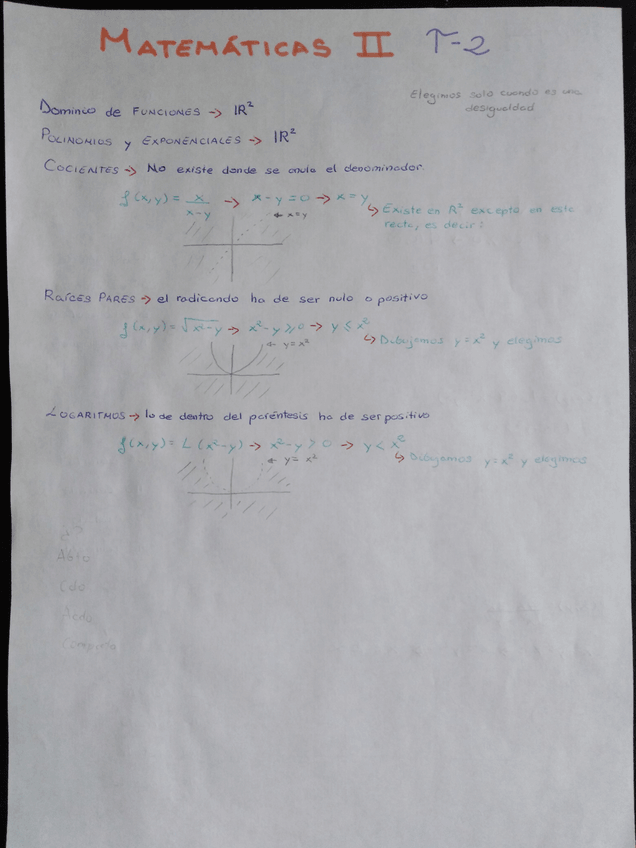 MATEMÁTICAS II T-2
Elegimos solo cuando es una
desigualdad
Dominio de FUNCIONES → ℝ²
POLINOMIOS y EXPONENCIALES → ℝ²
COCIENTES → No existe donde se anula el denominador.
f(x,y) = x/(x-y) → x-y=0 → x=y
↳ Existe en R² excepto en esta
recta, es decir:
← x=y
RAÍCES PARES → el radicando ha de ser nulo o positivo
f(x,y) = √(x²-y) → x²-y ≥ 0 → y ≤ x²
↳ Dibujamos y=x² y elegimos
← y=x²
LOGARITMOS → lo de dentro del paréntesis ha de ser positivo
f(x,y) = L(x²-y) → x²-y > 0 → y < x²
↳ Dibujamos y=x² y elegimos
← y=x²
d?
Abto
Cdo
Acdo
Compacto